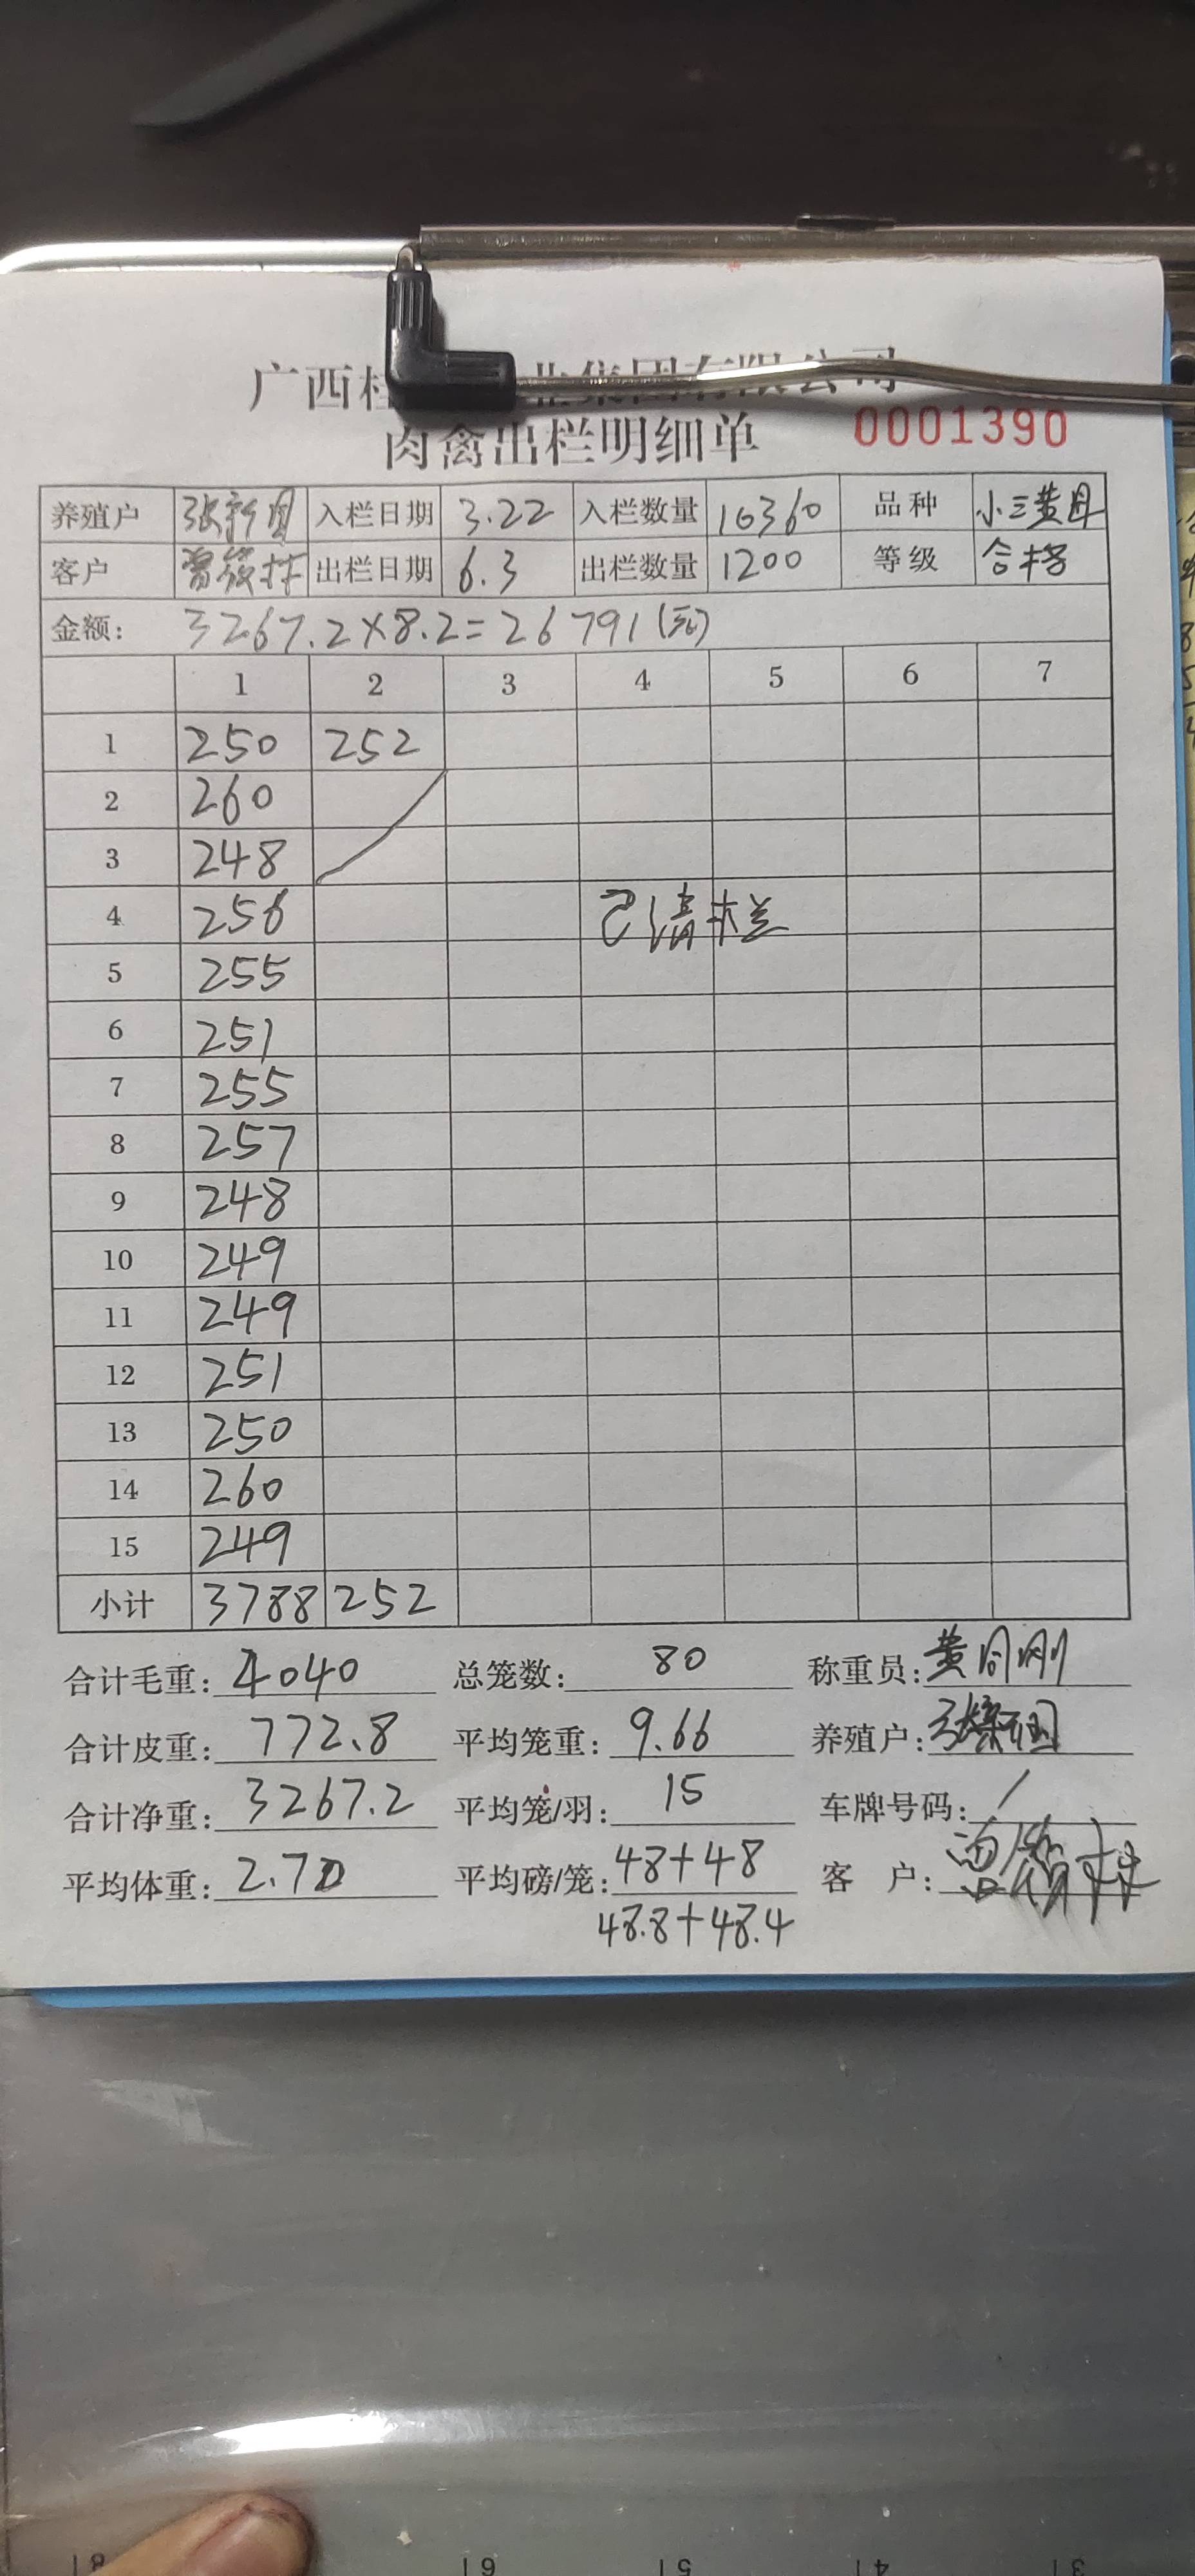 广西桂 业集团有限公司
肉禽出栏明细单 0001390
养殖户 张新国 入栏日期 3.22 入栏数量 10360 品种 小三黄母
客户 出栏日期 6.3 出栏数量 1200 等级 合格
金额: 3267.2×8.2=26791(元)
1 2 3 4 5 6 7
1 250 252
2 260
3 248
4 256 已清栏
5 255
6 251
7 255
8 257
9 248
10 249
11 249
12 251
13 250
14 260
15 249
小计 3788 252
合计毛重: 4040 总笼数: 80 称重员: 黄同刚
合计皮重: 772.8 平均笼重: 9.66 养殖户: 张新国
合计净重: 3267.2 平均笼/羽: 15 车牌号码: /
平均体重: 2.72 平均磅/笼: 48+48 客 户:
48.8+48.4
61 51 41 31